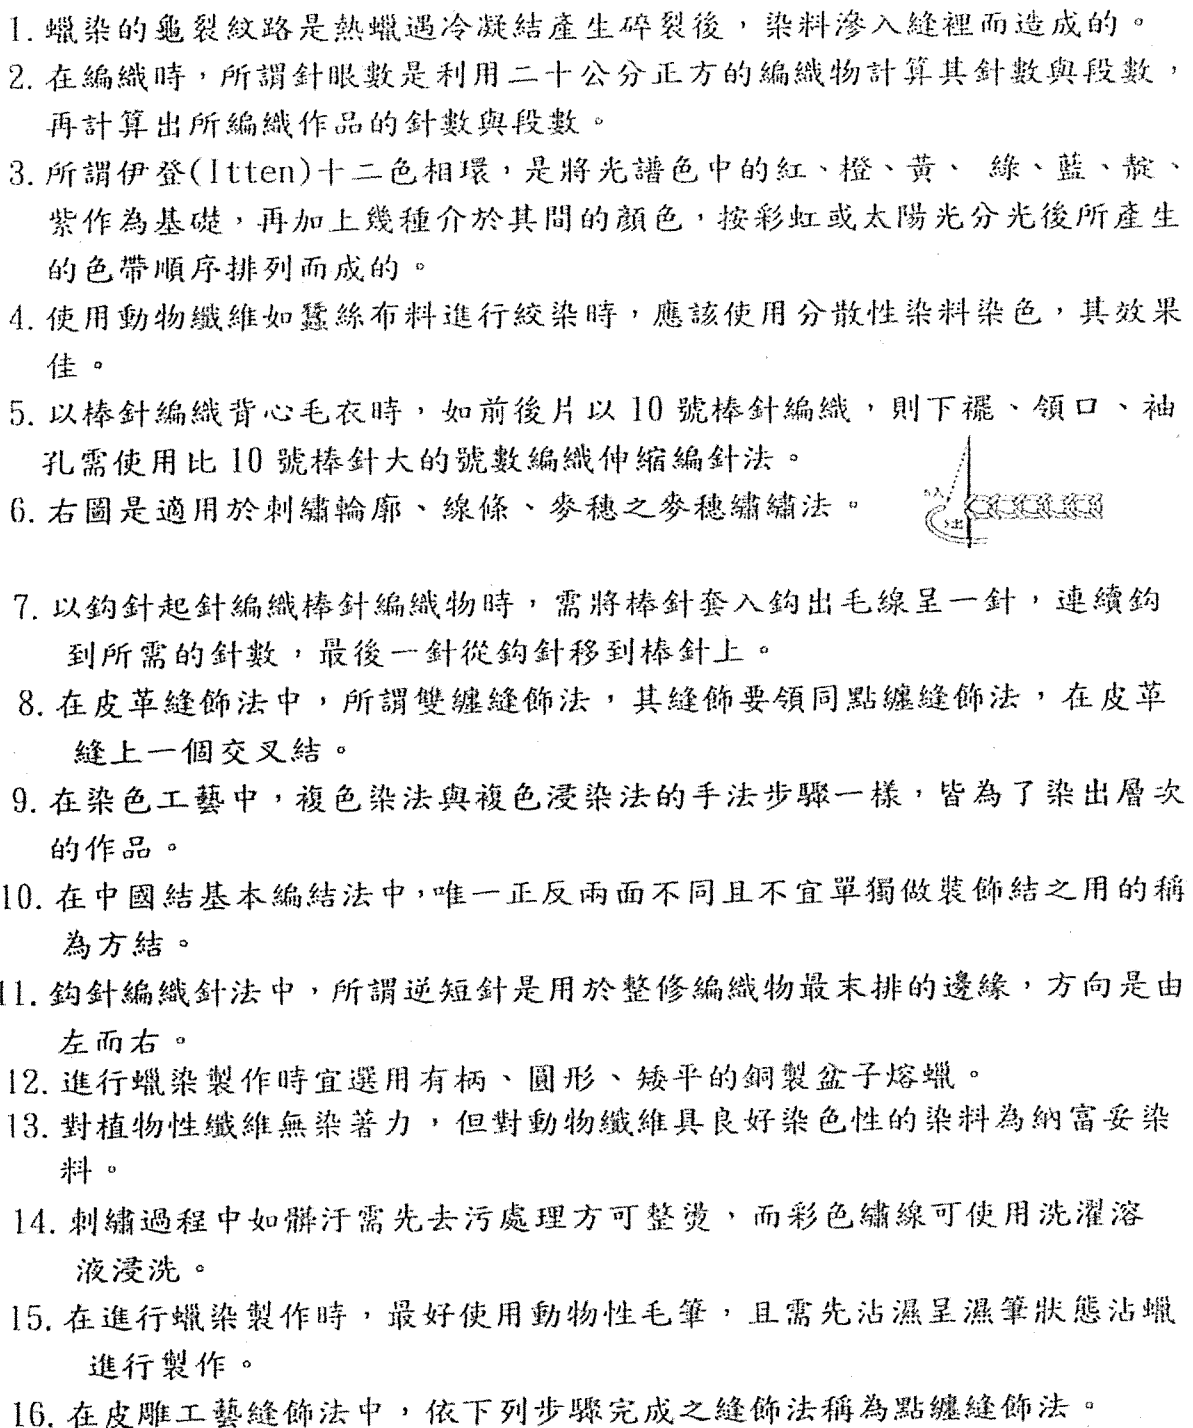 1. 蠟染的龜裂紋路是熱蠟遇冷凝結產生碎裂後，染料滲入縫裡而造成的。
2. 在編織時，所謂針眼數是利用二十公分正方的編織物計算其針數與段數，
再計算出所編織作品的針數與段數。
3. 所謂伊登(Itten)十二色相環，是將光譜色中的紅、橙、黃、 綠、藍、靛、
紫作為基礎，再加上幾種介於其間的顏色，按彩虹或太陽光分光後所產生
的色帶順序排列而成的。
4. 使用動物纖維如蠶絲布料進行絞染時，應該使用分散性染料染色，其效果
佳。
5. 以棒針編織背心毛衣時，如前後片以 10 號棒針編織，則下襬、領口、袖
孔需使用比 10 號棒針大的號數編織伸縮編針法。
6. 右圖是適用於刺繡輪廓、線條、麥穗之麥穗繡繡法。
入
出
7. 以鈎針起針編織棒針編織物時，需將棒針套入鈎出毛線呈一針，連續鈎
到所需的針數，最後一針從鈎針移到棒針上。
8. 在皮革縫飾法中，所謂雙纏縫飾法，其縫飾要領同點纏縫飾法，在皮革
縫上一個交叉結。
9. 在染色工藝中，複色染法與複色浸染法的手法步驟一樣，皆為了染出層次
的作品。
10. 在中國結基本編結法中，唯一正反兩面不同且不宜單獨做裝飾結之用的稱
為方結。
11. 鈎針編織針法中，所謂逆短針是用於整修編織物最末排的邊緣，方向是由
左而右。
12. 進行蠟染製作時宜選用有柄、圓形、矮平的銅製盆子熔蠟。
13. 對植物性纖維無染著力，但對動物纖維具良好染色性的染料為納富妥染
料。
14. 刺繡過程中如髒汙需先去污處理方可整燙，而彩色繡線可使用洗濯溶
液浸洗。
15. 在進行蠟染製作時，最好使用動物性毛筆，且需先沾濕呈濕筆狀態沾蠟
進行製作。
16. 在皮雕工藝縫飾法中，依下列步驟完成之縫飾法稱為點纏縫飾法。